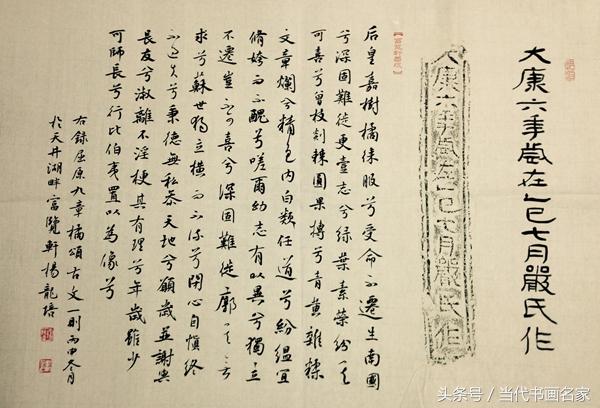 大康六年歲在乙巳七月嚴氏作
大康六年歲在乙巳七月嚴氏作
后皇嘉樹橘徠服兮受命不遷生南國
兮深固難徙更壹志兮綠葉素榮紛其
可喜兮曾枝剡棘圓果摶兮青黃雜糅
文章爛兮精色內白類任道兮紛緼宜
脩姱而不醜兮嗟爾幼志有以異兮獨立
不遷豈不可喜兮深固難徙廓其無
求兮蘇世獨立橫而不流兮閉心自慎終
不過失兮秉德無私參天地兮願歲並謝與
長友兮淑離不淫梗其有理兮年歲雖少
可師長兮行比伯夷置以為像兮
右錄屈原九章橘頌古文一則丙申冬月
於天井湖畔富覽軒楊龍培
头条号／当代书画名家